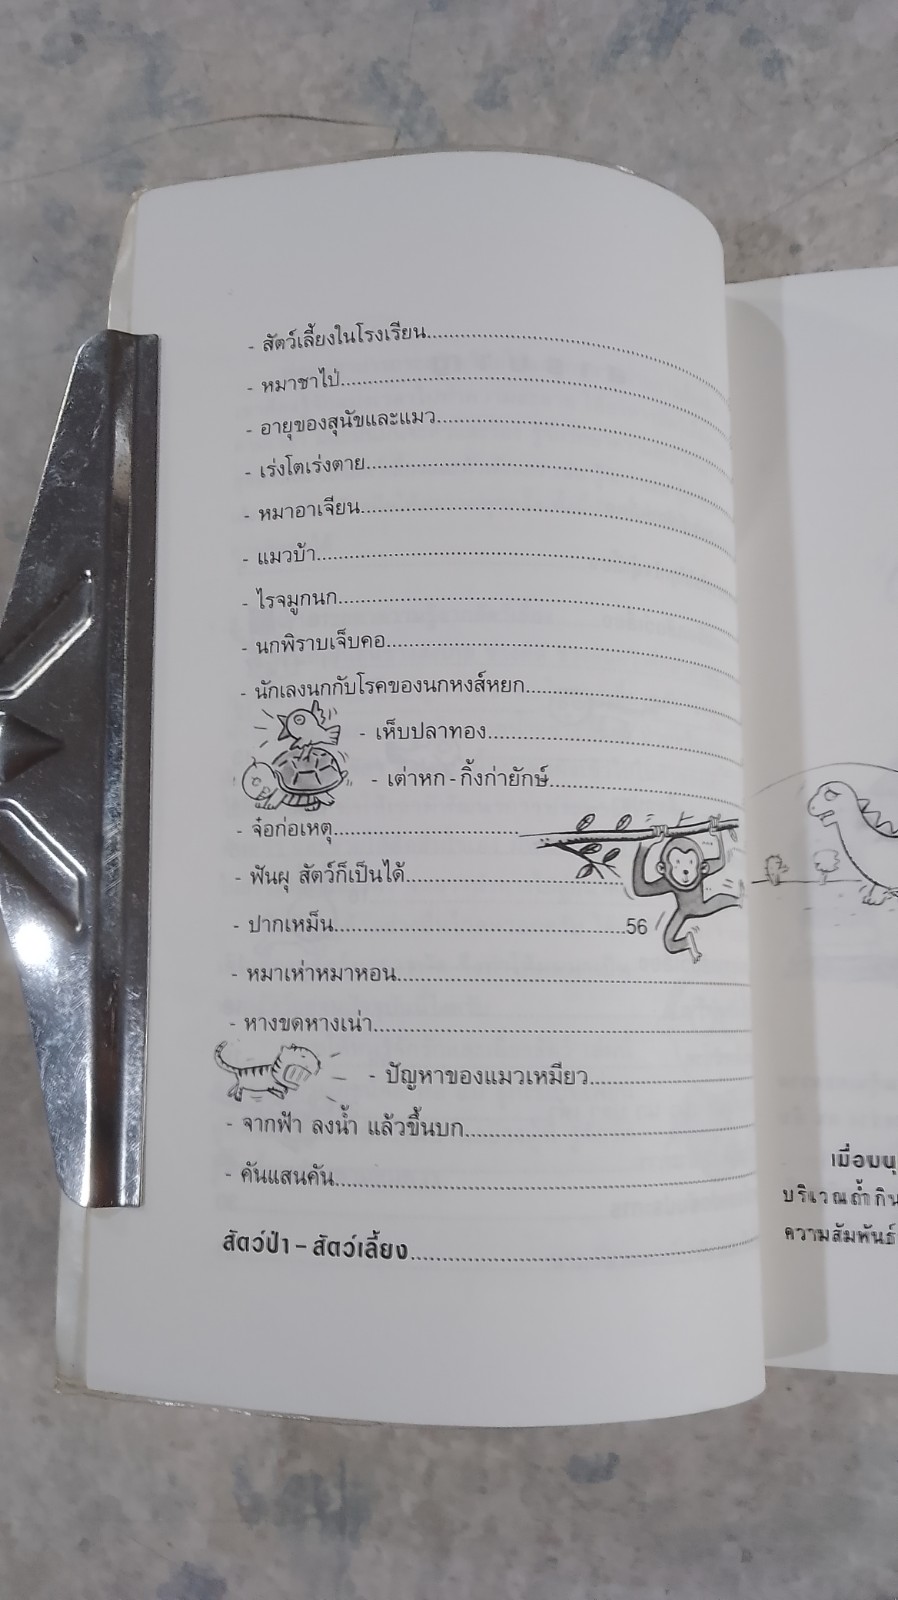 - สัตว์เลี้ยงในโรงเรียน
- หมาชาไป่
- อายุของสุนัขและแมว
- เร่งโตเร่งตาย
- หมาอาเจียน
- แมวบ้า
- ไรจมูกนก
- นกพิราบเจ็บคอ
- นักเลงนกกับโรคของนกหงส์หยก
- เห็บปลาทอง
- เต่าหก - กิ้งก่ายักษ์
- จ๋อก่อเหตุ
- ฟันผุ สัตว์ก็เป็นได้
- ปากเหม็น 56
- หมาเห่าหมาหอน
- หางขดหางเน่า
- ปัญหาของแมวเหมียว
- จากฟ้า ลงน้ำ แล้วขึ้นบก
- คันแสนคัน
สัตว์ป่า – สัตว์เลี้ยง
บริเวณถ้ำ
ความสัมพันธ์